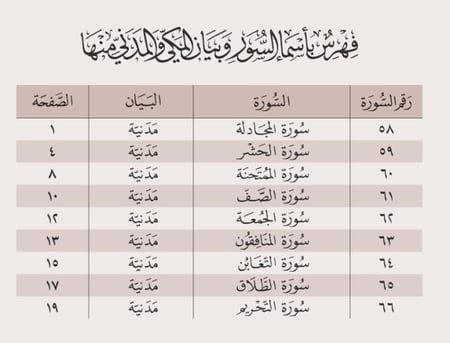 فِهْرِسٌ بِأَسْمَاءِ السُّوَرِ وَبَيَانِ المَكِّيِّ وَالمَدَنِيِّ مِنْهَا
رَقم السُّورَة السُّورَة البَيَان الصَّفحَة
٥٨ سُورَة المجَادلة مَدَنيّة ١
٥٩ سُورَة الحَشْر مَدَنيّة ٤
٦٠ سُورَة الممْتَحنَة مَدَنيّة ٨
٦١ سُورَة الصَّفّ مَدَنيّة ١٠
٦٢ سُورَة الجُمعَة مَدَنيّة ١٢
٦٣ سُورَة المنَافِقُون مَدَنيّة ١٣
٦٤ سُورَة التّغَابُن مَدَنيّة ١٥
٦٥ سُورَة الطَّلَاق مَدَنيّة ١٧
٦٦ سُورَة التَّحْريم مَدَنيّة ١٩